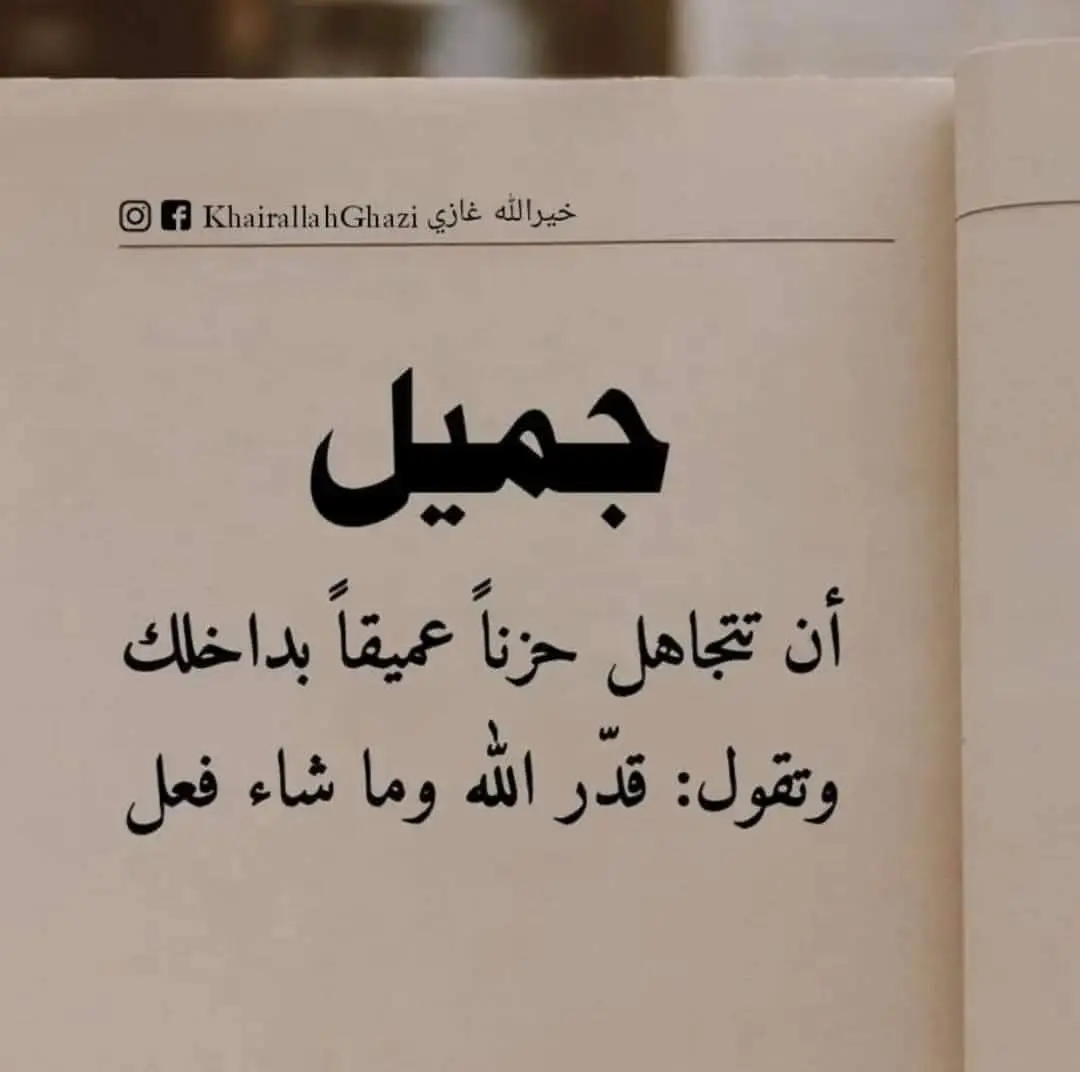 KhairallahGhazi خيرالله غازي
جميل
أن تتجاهل حزناً عميقاً بداخلك
وتقول: قدّر الله وما شاء فعل